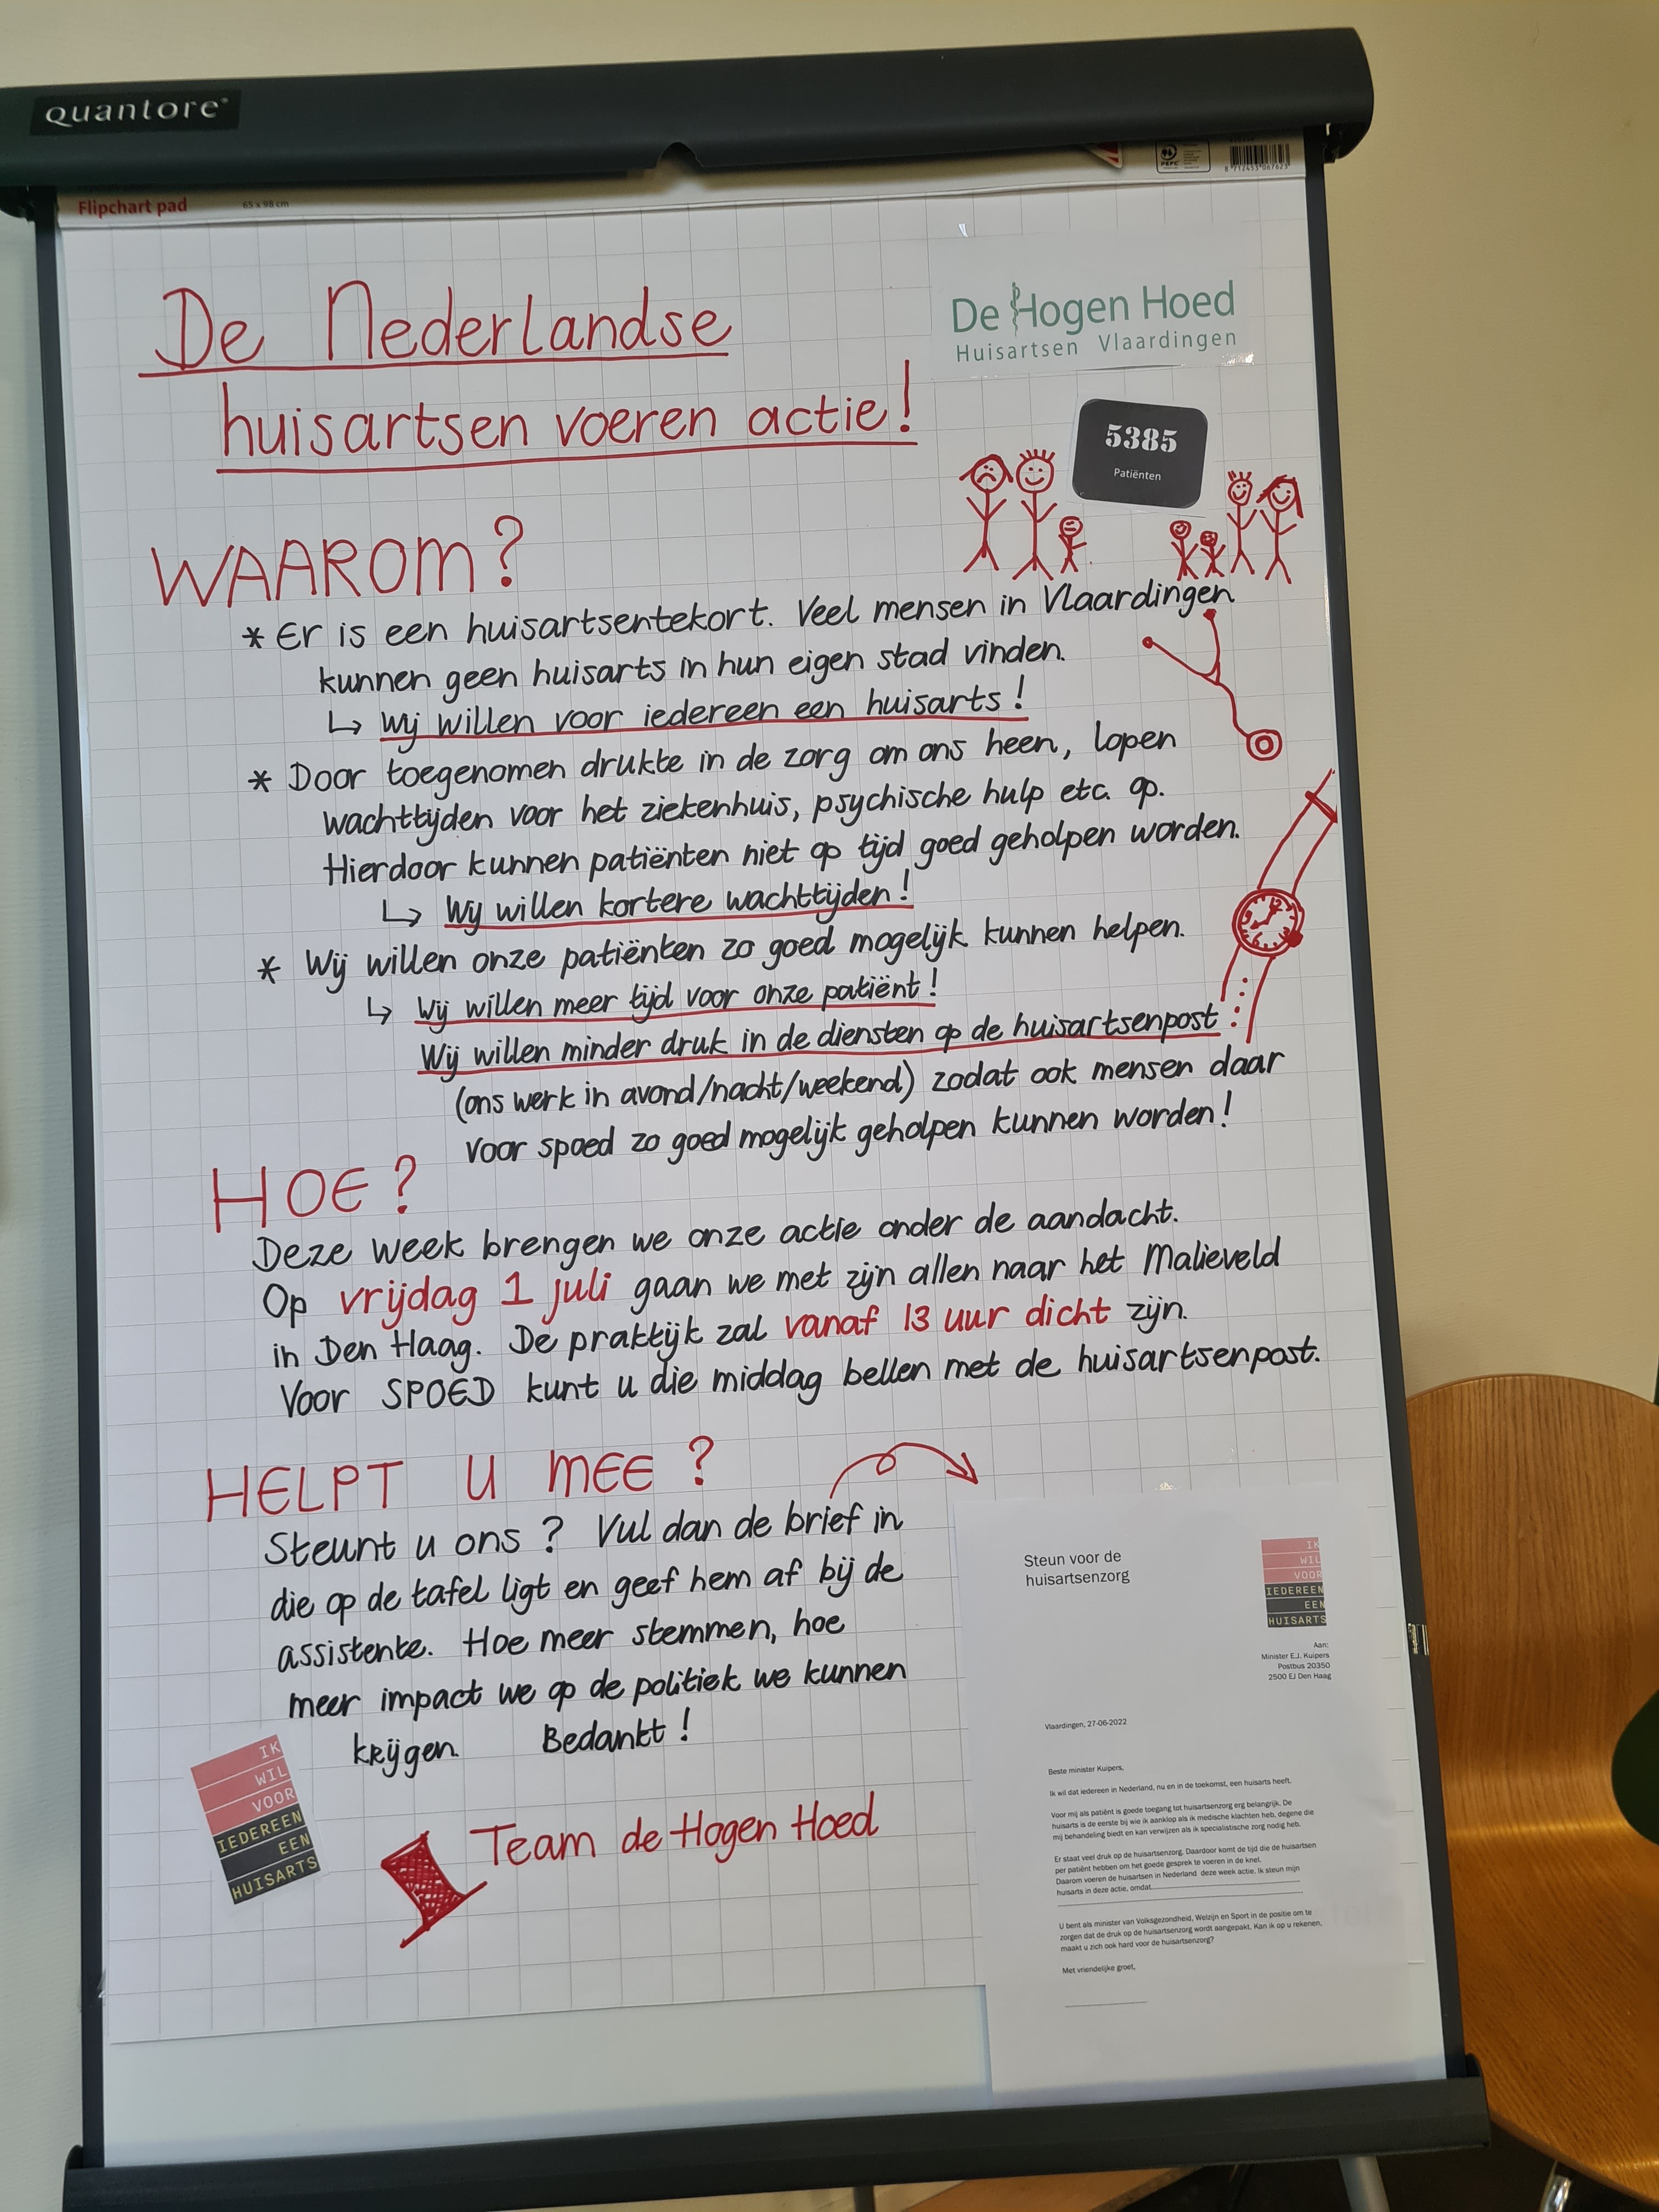 quantore
Flipchart pad
65 x 98 cm
PEFC
8 712453 067623
De Nederlandse
huisartsen voeren actie!
De Hogen Hoed
Huisartsen Vlaardingen
5385
Patiënten
WAAROM?
* Er is een huisartsentekort. Veel mensen in Vlaardingen
kunnen geen huisarts in hun eigen stad vinden.
↳ Wij willen voor iedereen een huisarts!
* Door toegenomen drukte in de zorg om ons heen, lopen
wachttijden voor het ziekenhuis, psychische hulp etc. op.
Hierdoor kunnen patiënten niet op tijd goed geholpen worden.
↳ Wij willen kortere wachttijden!
* Wij willen onze patiënten zo goed mogelijk kunnen helpen.
↳ Wij willen meer tijd voor onze patiënt!
Wij willen minder druk in de diensten op de huisartsenpost
(ons werk in avond/nacht/weekend) zodat ook mensen daar
voor spoed zo goed mogelijk geholpen kunnen worden!
HOE?
Deze week brengen we onze actie onder de aandacht.
Op vrijdag 1 juli gaan we met zijn allen naar het Malieveld
in Den Haag. De praktijk zal vanaf 13 uur dicht zijn.
Voor SPOED kunt u die middag bellen met de huisartsenpost.
HELPT U MEE?
Steunt u ons? Vul dan de brief in
die op de tafel ligt en geef hem af bij de
assistente. Hoe meer stemmen, hoe
meer impact we op de politiek we kunnen
krijgen. Bedankt!
Team de Hogen Hoed
IK
WIL
VOOR
IEDEREEN
EEN
HUISARTS
Steun voor de
huisartsenzorg
IK
WIL
VOOR
IEDEREEN
EEN
HUISARTS
Aan:
Minister E.J. Kuipers
Postbus 20350
2500 EJ Den Haag
Vlaardingen, 27-06-2022
Beste minister Kuipers,
Ik wil dat iedereen in Nederland, nu en in de toekomst, een huisarts heeft.
Voor mij als patiënt is goede toegang tot huisartsenzorg erg belangrijk. De
huisarts is de eerste bij wie ik aanklop als ik medische klachten heb, degene die
mij behandeling biedt en kan verwijzen als ik specialistische zorg nodig heb.
Er staat veel druk op de huisartsenzorg. Daardoor komt de tijd die de huisartsen
per patiënt hebben om het goede gesprek te voeren in de knel.
Daarom voeren de huisartsen in Nederland deze week actie. Ik steun mijn
huisarts in deze actie, omdat
U bent als minister van Volksgezondheid, Welzijn en Sport in de positie om te
zorgen dat de druk op de huisartsenzorg wordt aangepakt. Kan ik op u rekenen,
maakt u zich ook hard voor de huisartsenzorg?
Met vriendelijke groet,